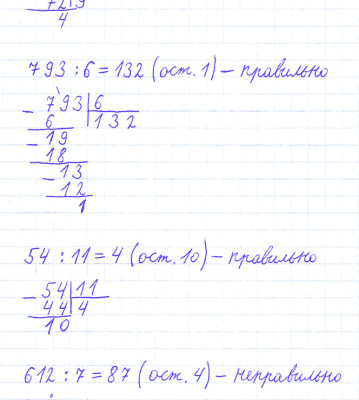 7219
4
793 : 6 = 132 (ост. 1) – правильно
793 6
6 132
19
18
13
12
1
54 : 11 = 4 (ост. 10) – правильно
54 11
44 4
10
612 : 7 = 87 (ост. 4) – неправильно